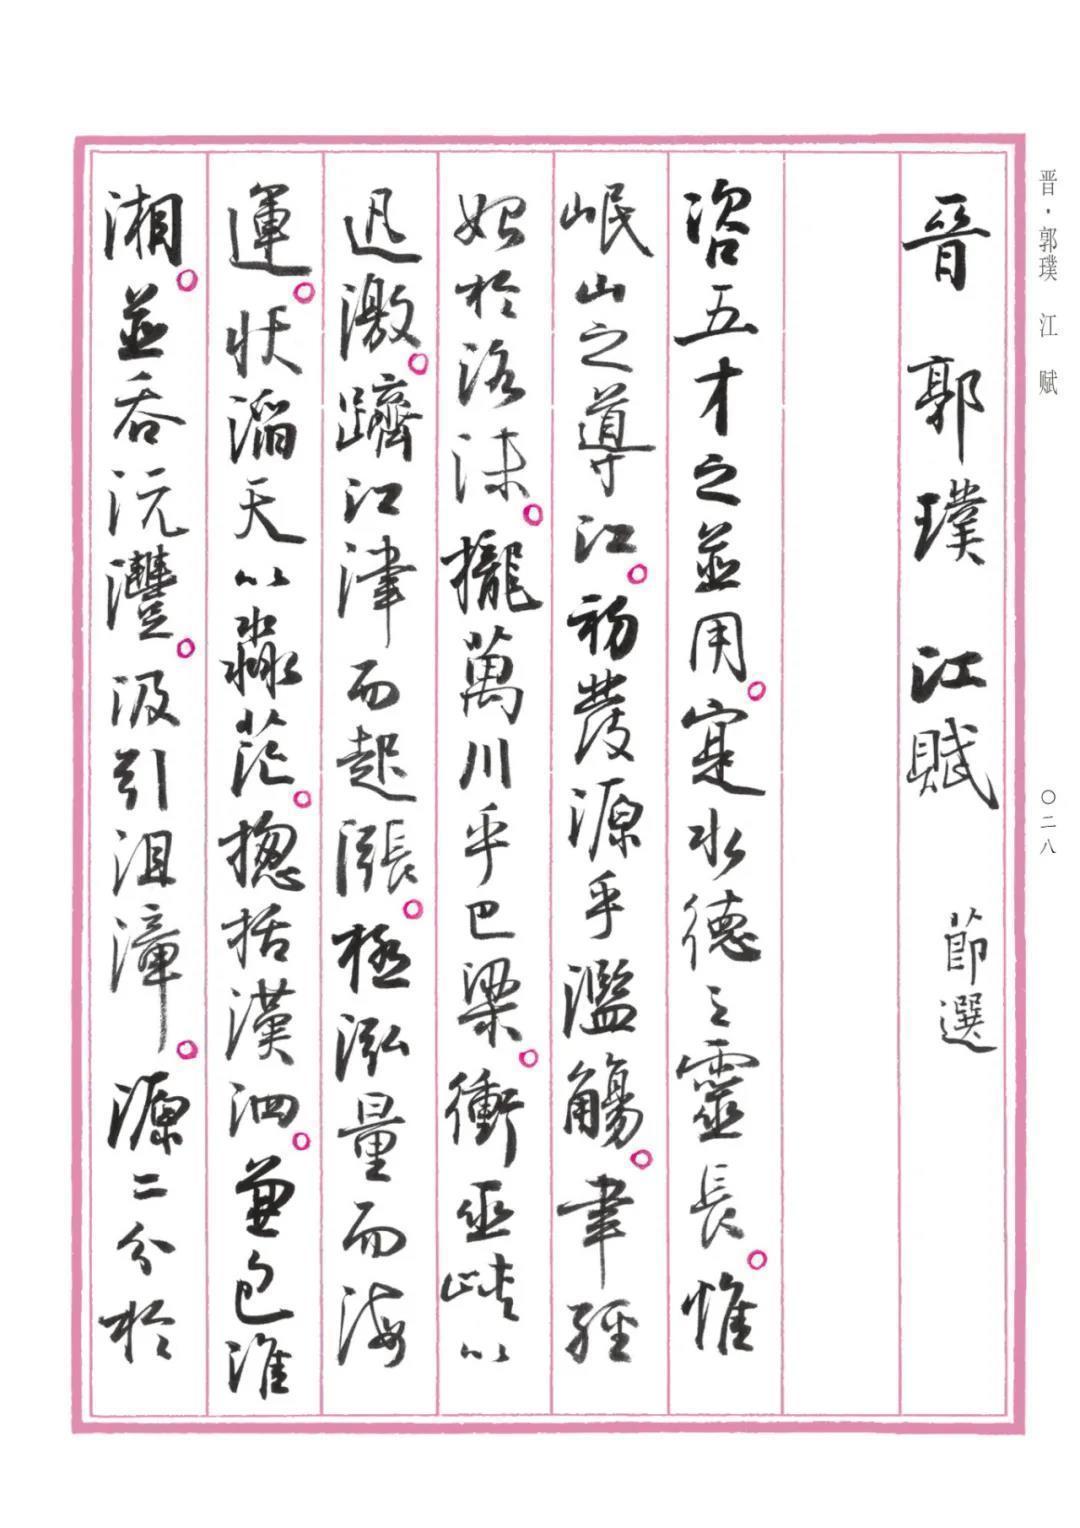 晋·郭璞 江賦
〇二八
晉 郭璞 江賦 節選
咨五才之並用。寔水德之靈長。惟
岷山之導江。初發源乎濫觴。聿經
始於洛沬。攏萬川乎巴梁。衝巫峽以
迅激。躋江津而起漲。極泓量而海
運。狀滔天以淼茫。揔括漢泗。兼包淮
湘。並吞沅澧。汲引沮漳。源二分於